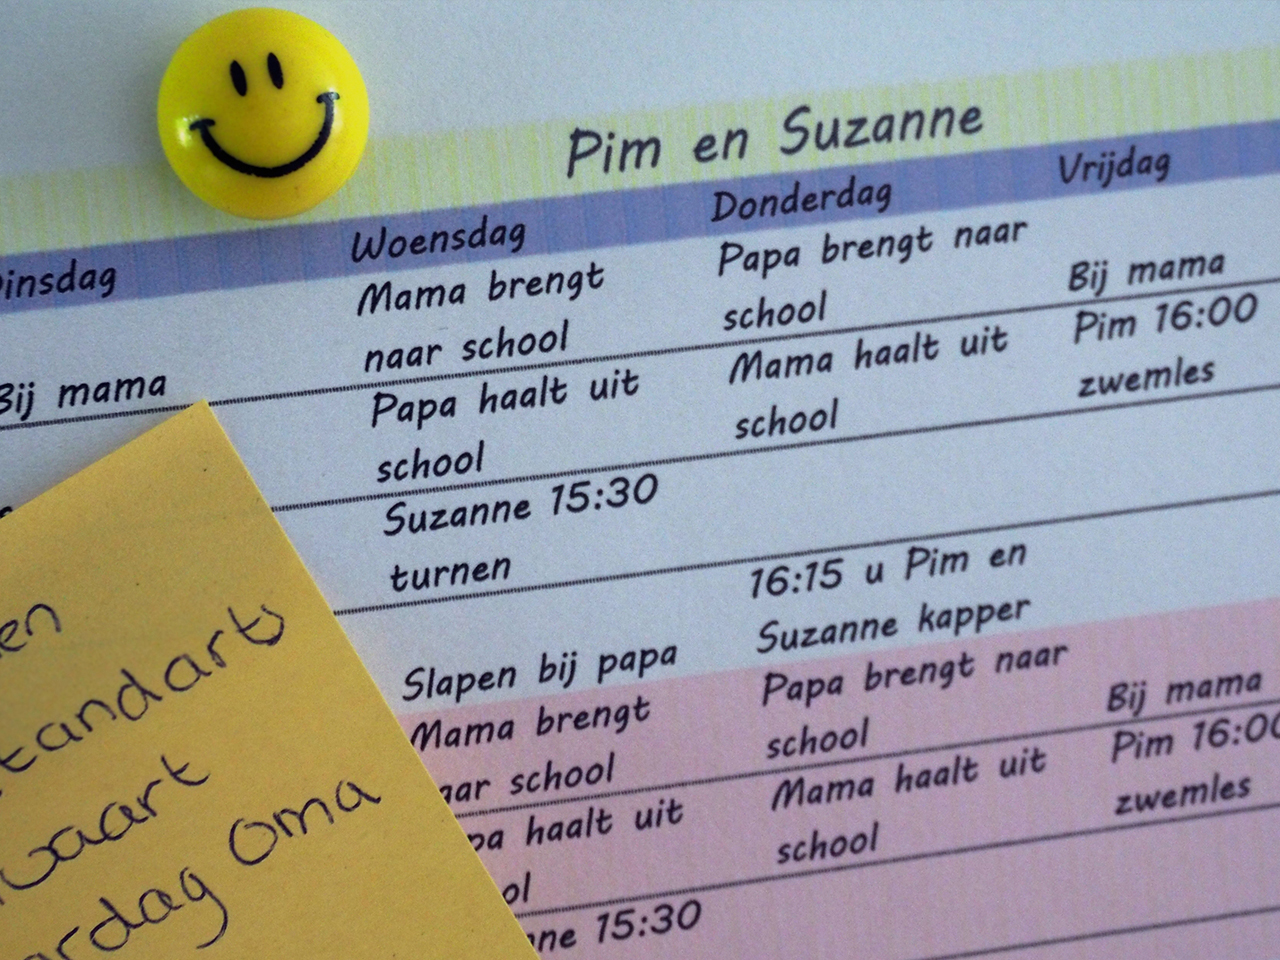 Pim en Suzanne
Dinsdag Woensdag Donderdag Vrijdag
Bij mama
Mama brengt
naar school
Papa haalt uit
school
Suzanne 15:30
turnen
Slapen bij papa
Mama brengt
naar school
Papa haalt uit
school
Suzanne 15:30
Papa brengt naar
school
Mama haalt uit
school
16:15 u Pim en
Suzanne kapper
Papa brengt naar
school
Mama haalt uit
school
Bij mama
Pim 16:00
zwemles
Bij mama
Pim 16:00
zwemles
en
tandarts
kaart
ardag oma